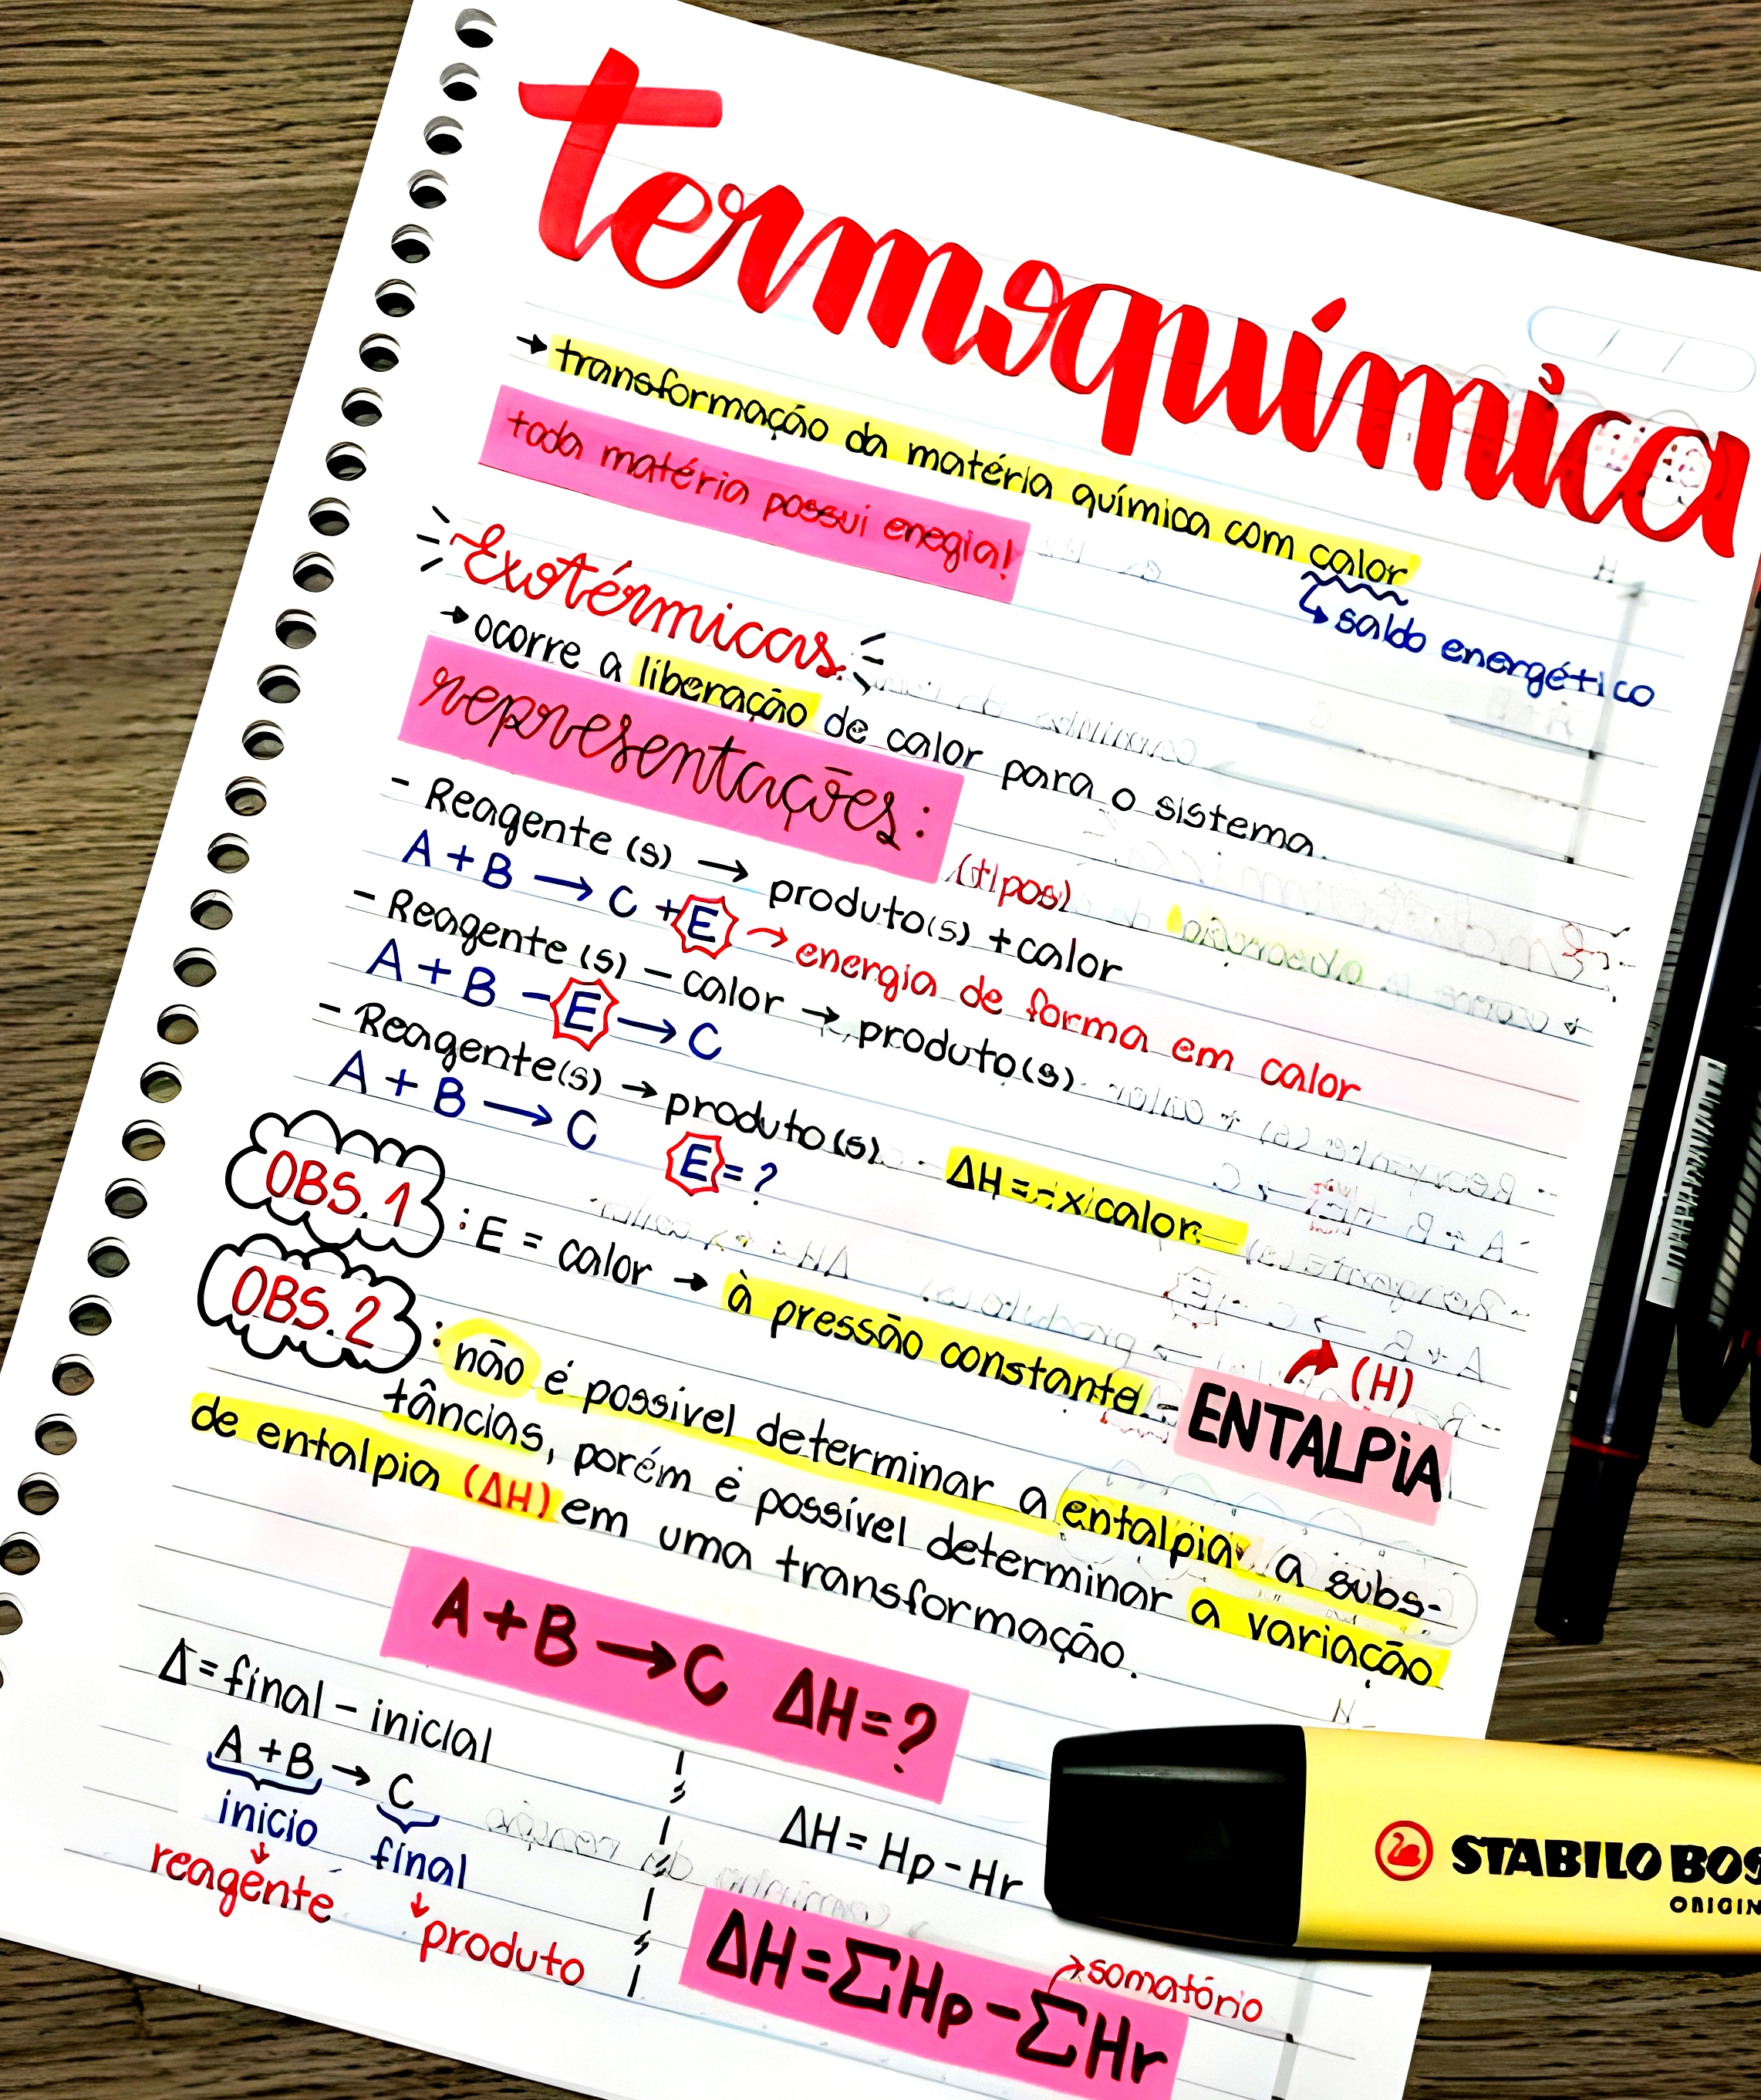 termoquímica
→ transformação da matéria química com calor
↳ saldo energético
toda matéria possui enegia!
Exotérmicas
→ ocorre a liberação de calor para o sistema.
representações:
(tipos)
- Reagente (s) → produto(s) + calor
A + B → C + E → energia de forma em calor
- Reagente (s) - calor → produto(s)
A + B - E → C
- Reagente(s) → produto(s) ΔH = - x calor
A + B → C E = ?
OBS.1 : E = calor → à pressão constante = ENTALPiA (H)
OBS.2 : não é possível determinar a entalpia a subs-
tâncias, porém é possível determinar a variação
de entalpia (ΔH) em uma transformação.
A + B → C ΔH = ?
Δ = final - inicial
A + B → C
início final
reagente produto
ΔH = Hp - Hr
somatório
ΔH = ΣHp - ΣHr
STABILO BOS
ORIGIN